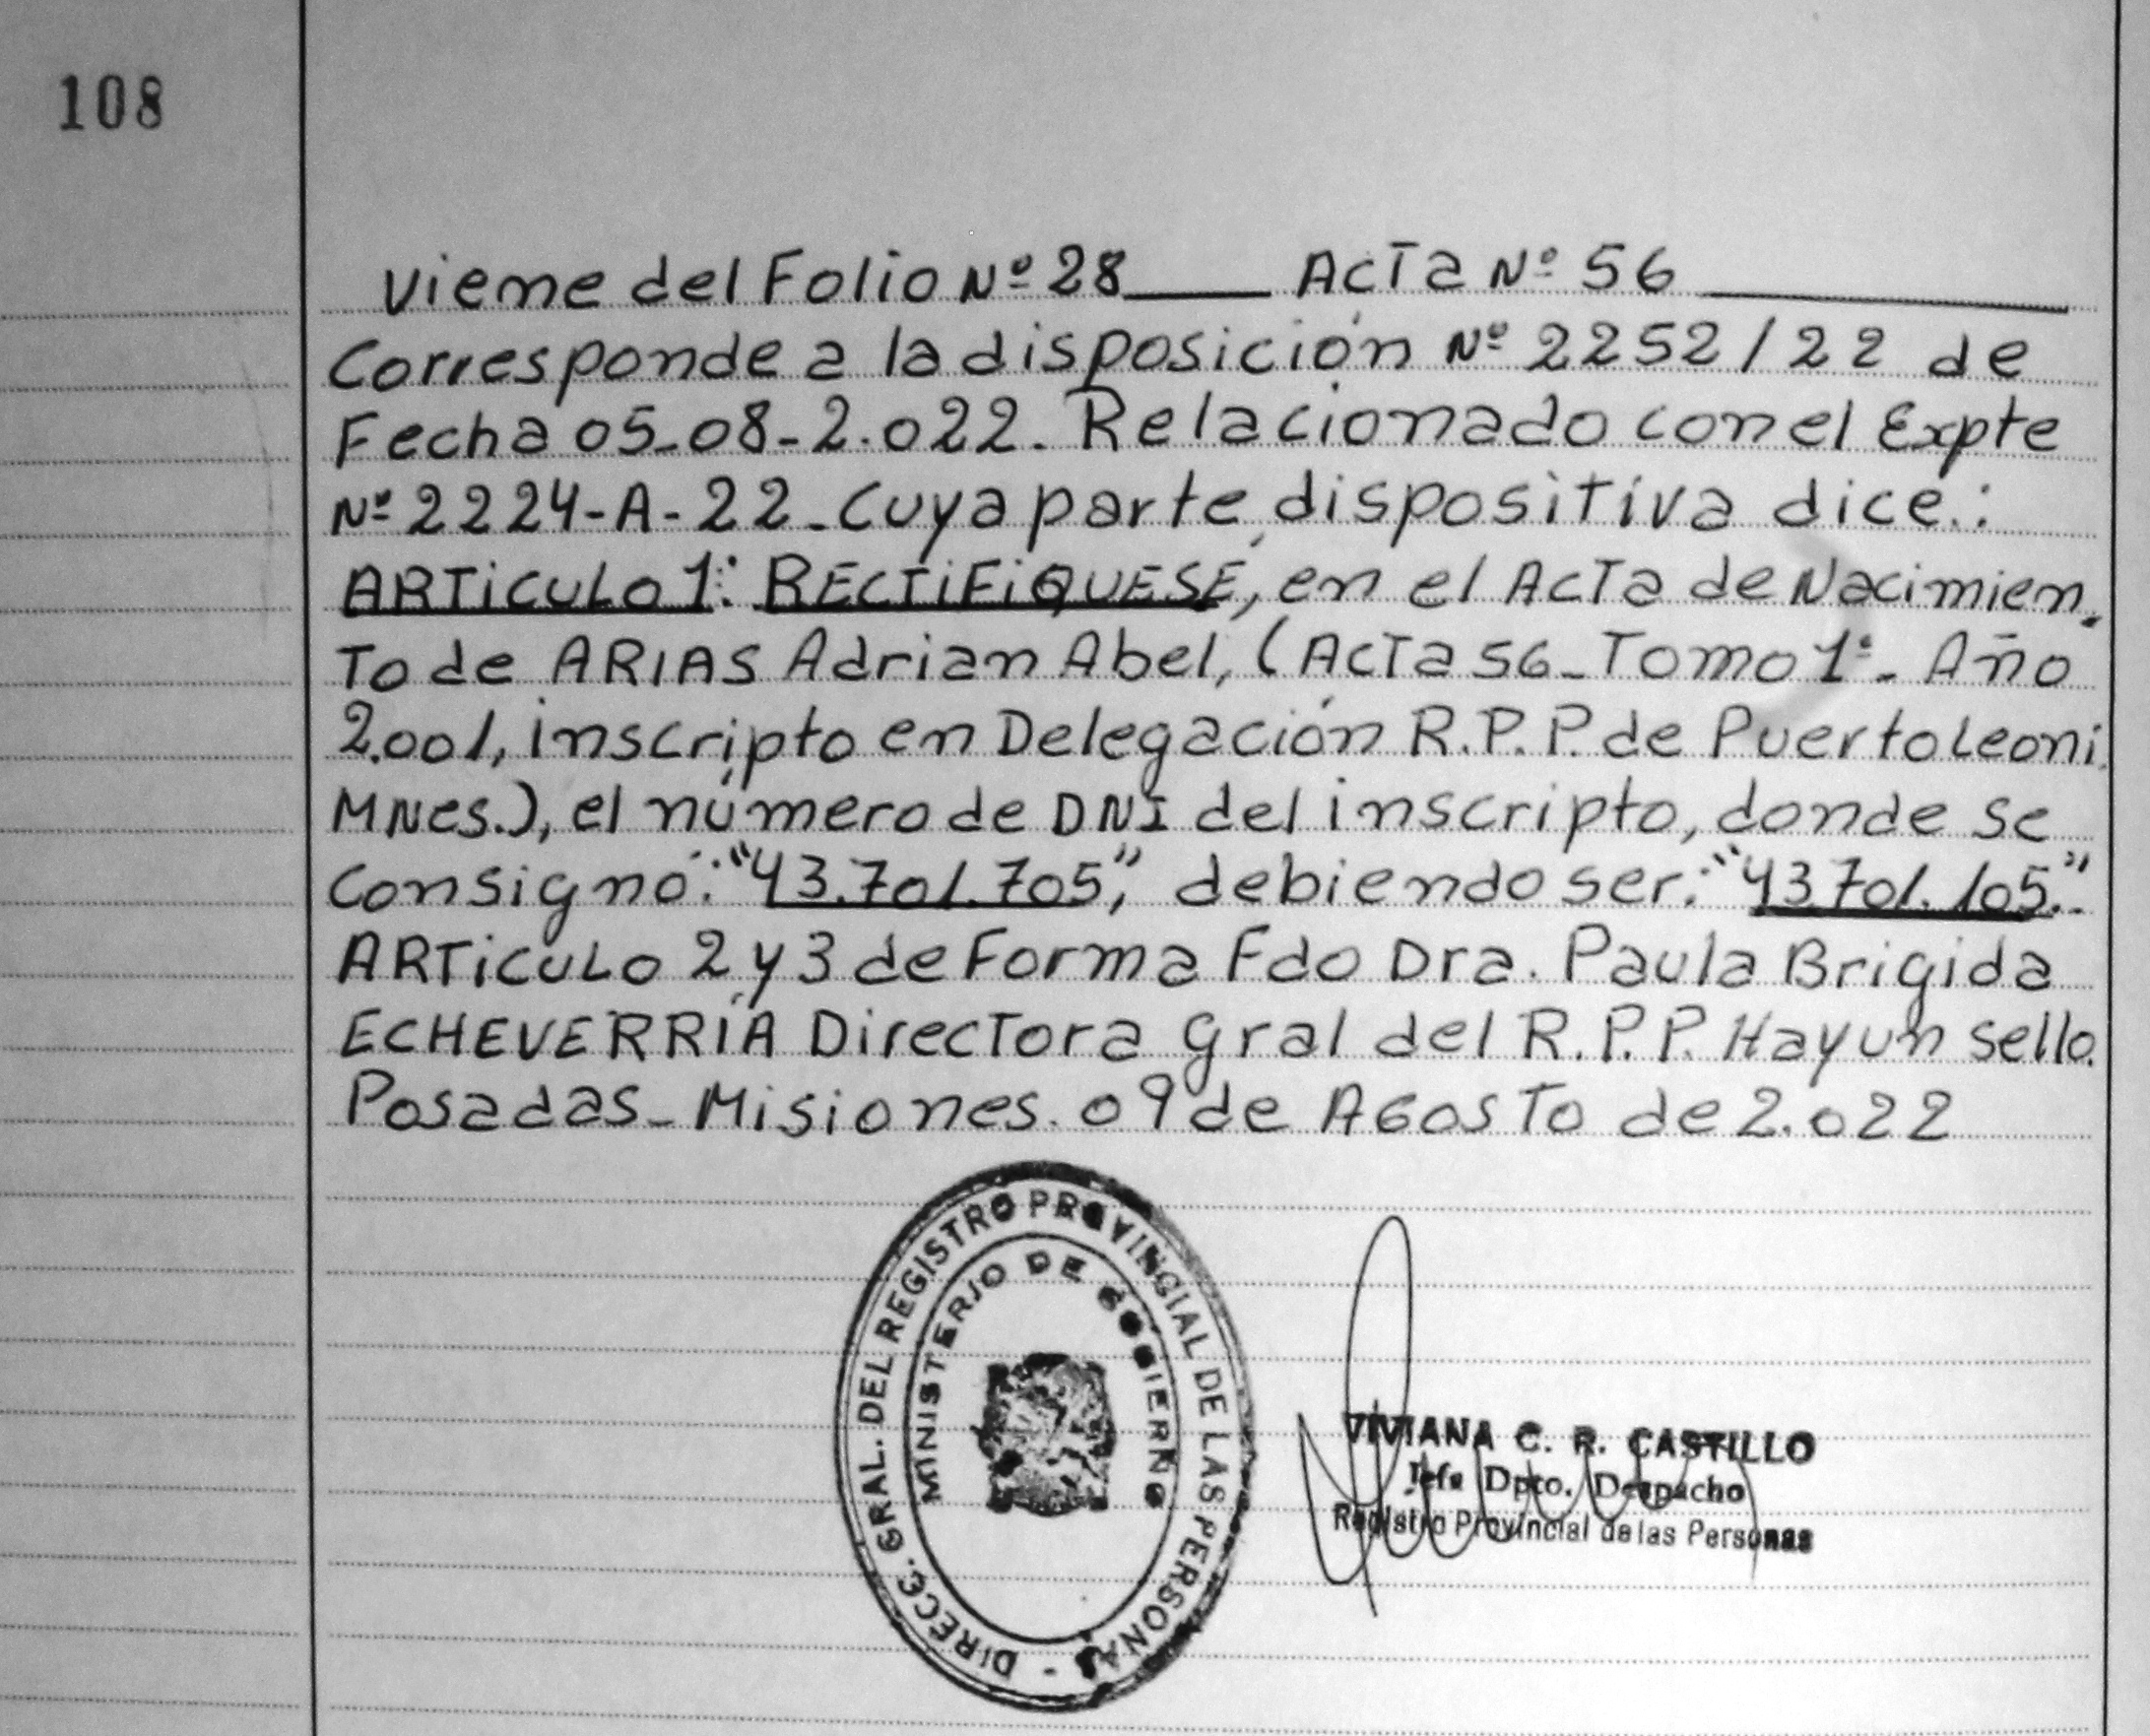 108
Viene del Folio Nº 28____ Acta Nº 56________
Corresponde a la disposición Nº 2252/22 de
Fecha 05-08-2.022. Relacionado con el Expte
Nº 2224-A-22_Cuya parte dispositiva dice.:
ARTiCULO 1: RECTiFiQUESE, en el Acta de Nacimien_
To de ARIAS Adrian Abel, (Acta 56_Tomo 1º_ Año
2.001, inscripto en Delegación R.P.P. de Puerto Leoni
MNes.), el número de DNI del inscripto, donde se
Consignó: "43.701.705", debiendo ser: "43.701.105."
ARTiCULO 2 y 3 de Forma Fdo Dra. Paula Brigida
ECHEVERRÍA Directora Gral del R.P.P. Hay un sello.
Posadas_Misiones. 09 de AGosTo de 2.022
DIRECC. GRAL. DEL REGISTRO PROVINCIAL DE LAS PERSONAS -
MINISTERIO DE GOBIERNO
VIVIANA C. R. CASTILLO
Jefe Dpto. Despacho
Registro Provincial de las Personas